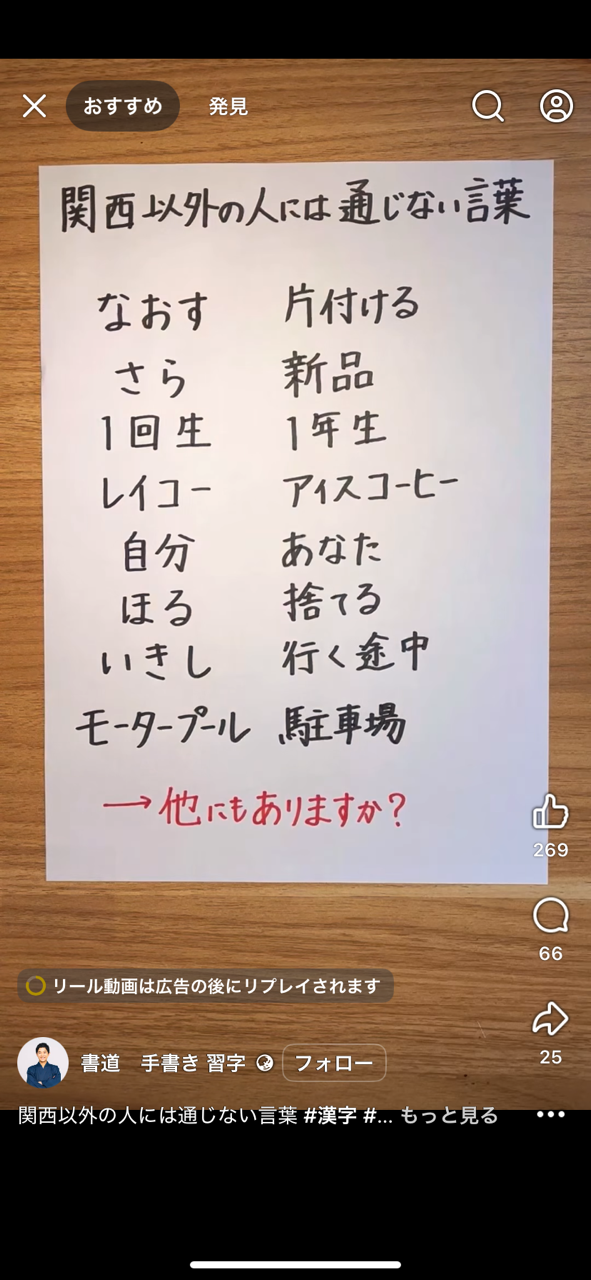 おすすめ 発見
関西以外の人には通じない言葉
なおす 片付ける
さら 新品
1回生 1年生
レイコー アイスコーヒー
自分 あなた
ほる 捨てる
いきし 行く途中
モータープール 駐車場
→他にもありますか?
269
66
リール動画は広告の後にリプレイされます
25
書道 手書き 習字 フォロー
関西以外の人には通じない言葉 #漢字 #... もっと見る